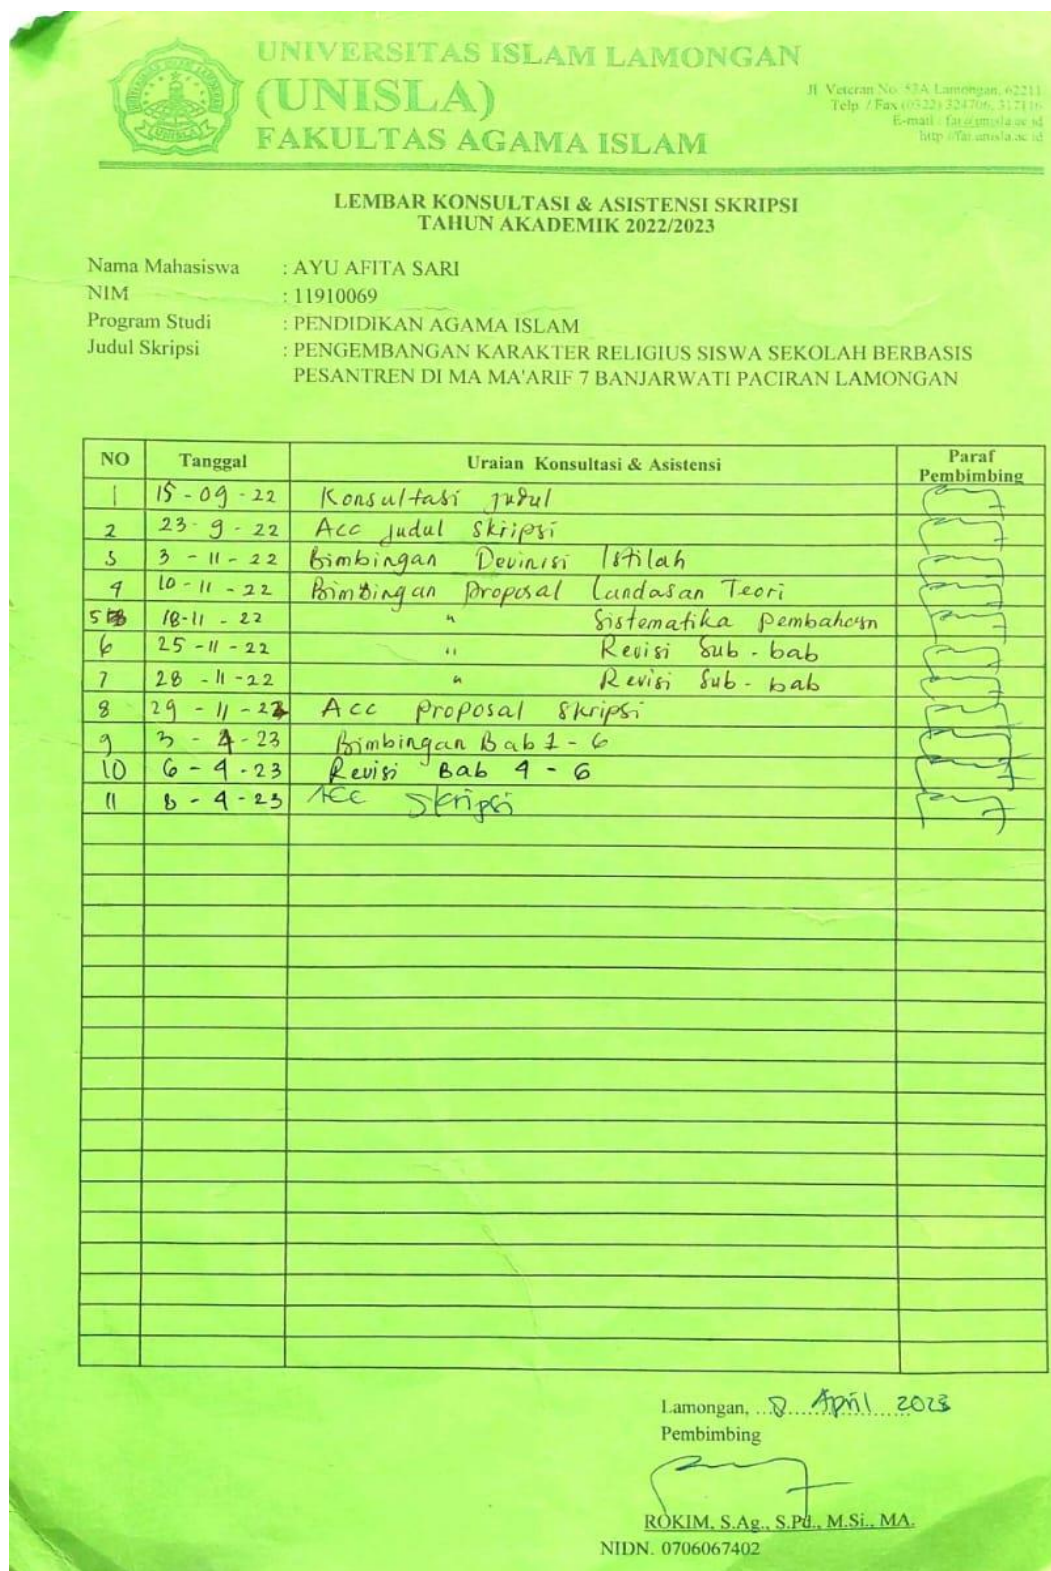 UNIVERSITAS ISLAM LAMONGAN
(UNISLA)
FAKULTAS AGAMA ISLAM
Jl. Veteran No. 53A Lamongan, 62211
Telp. / Fax (0322) 324706, 317116
E-mail : fai@unisla.ac.id
http://fai.unisla.ac.id
LEMBAR KONSULTASI & ASISTENSI SKRIPSI
TAHUN AKADEMIK 2022/2023
Nama Mahasiswa : AYU AFITA SARI
NIM : 11910069
Program Studi : PENDIDIKAN AGAMA ISLAM
Judul Skripsi : PENGEMBANGAN KARAKTER RELIGIUS SISWA SEKOLAH BERBASIS
PESANTREN DI MA MA'ARIF 7 BANJARWATI PACIRAN LAMONGAN
NO Tanggal Uraian Konsultasi & Asistensi Paraf Pembimbing
1 15-09-22 Konsultasi judul
2 23-9-22 Acc judul skripsi
3 3-11-22 Bimbingan Devinisi Istilah
4 10-11-22 Bimbingan proposal Landasan Teori
5 18-11-22 " Sistematika pembahasn
6 25-11-22 " Revisi Sub-bab
7 28-11-22 " Revisi Sub-bab
8 29-11-22 Acc proposal skripsi
9 3-4-23 Bimbingan Bab 1-6
10 6-4-23 Revisi Bab 4-6
11 8-4-23 ACC Skripsi
Lamongan, 8 April 2023
Pembimbing
ROKIM, S.Ag., S.Pd., M.Si., MA.
NIDN. 0706067402